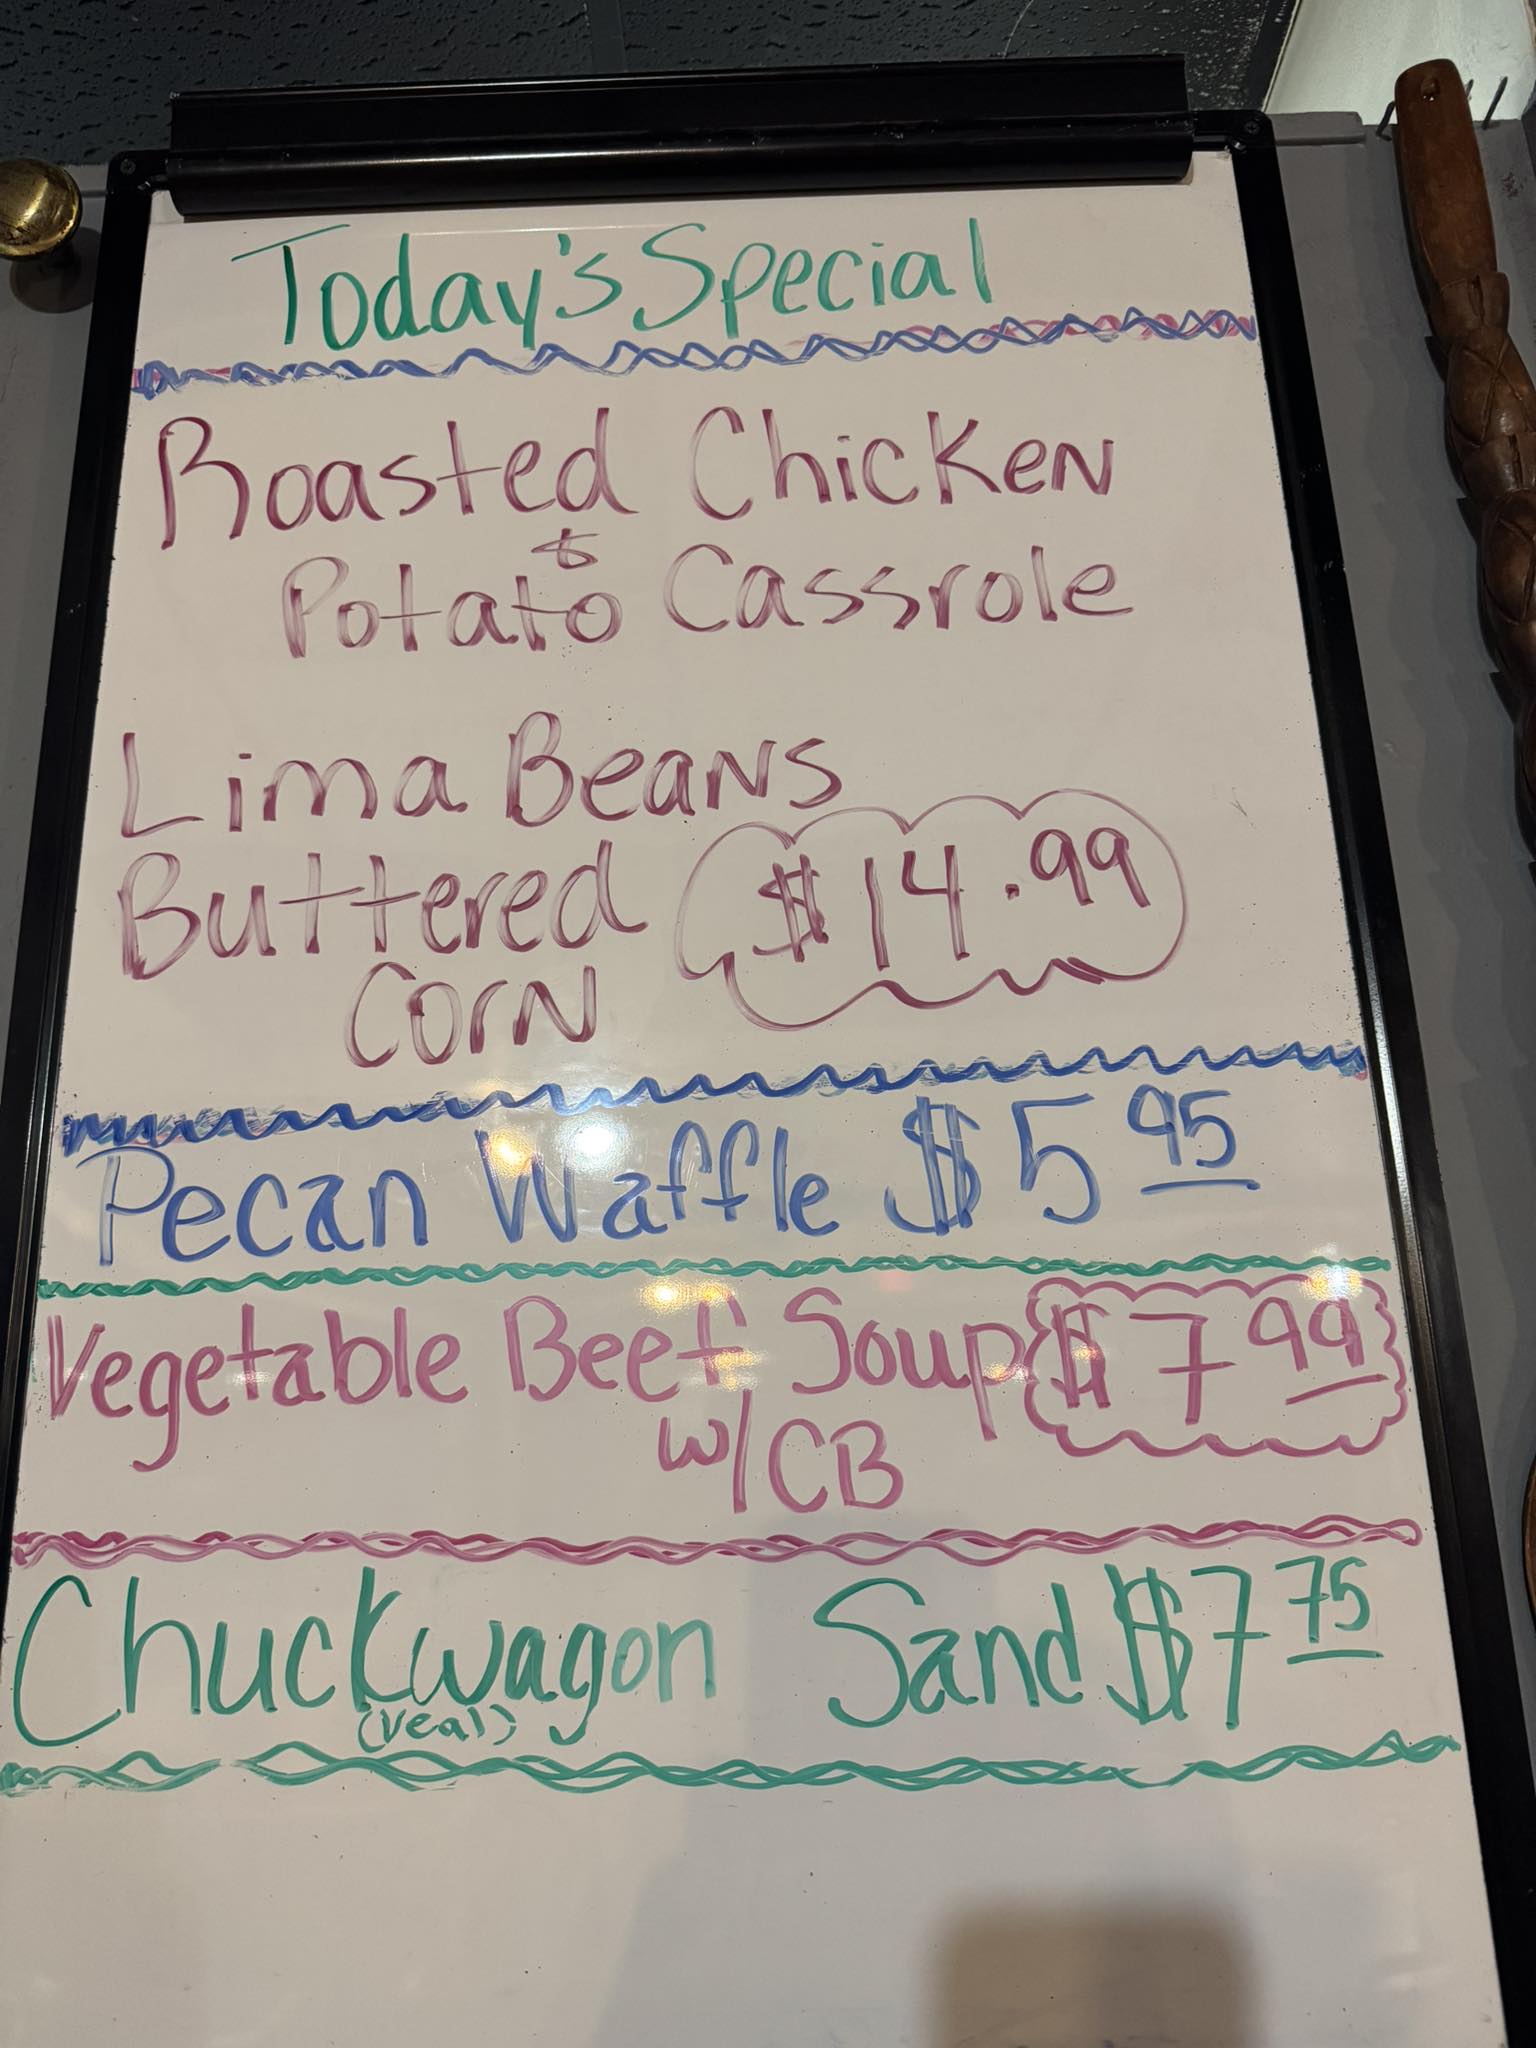 Today's Special
Roasted Chicken
&
Potato Cassrole
Lima Beans
Buttered $14.99
Corn
Pecan Waffle $5 95
Vegetable Beef Soup $7 99
w/CB
Chuckwagon Sand $7 75
(veal)